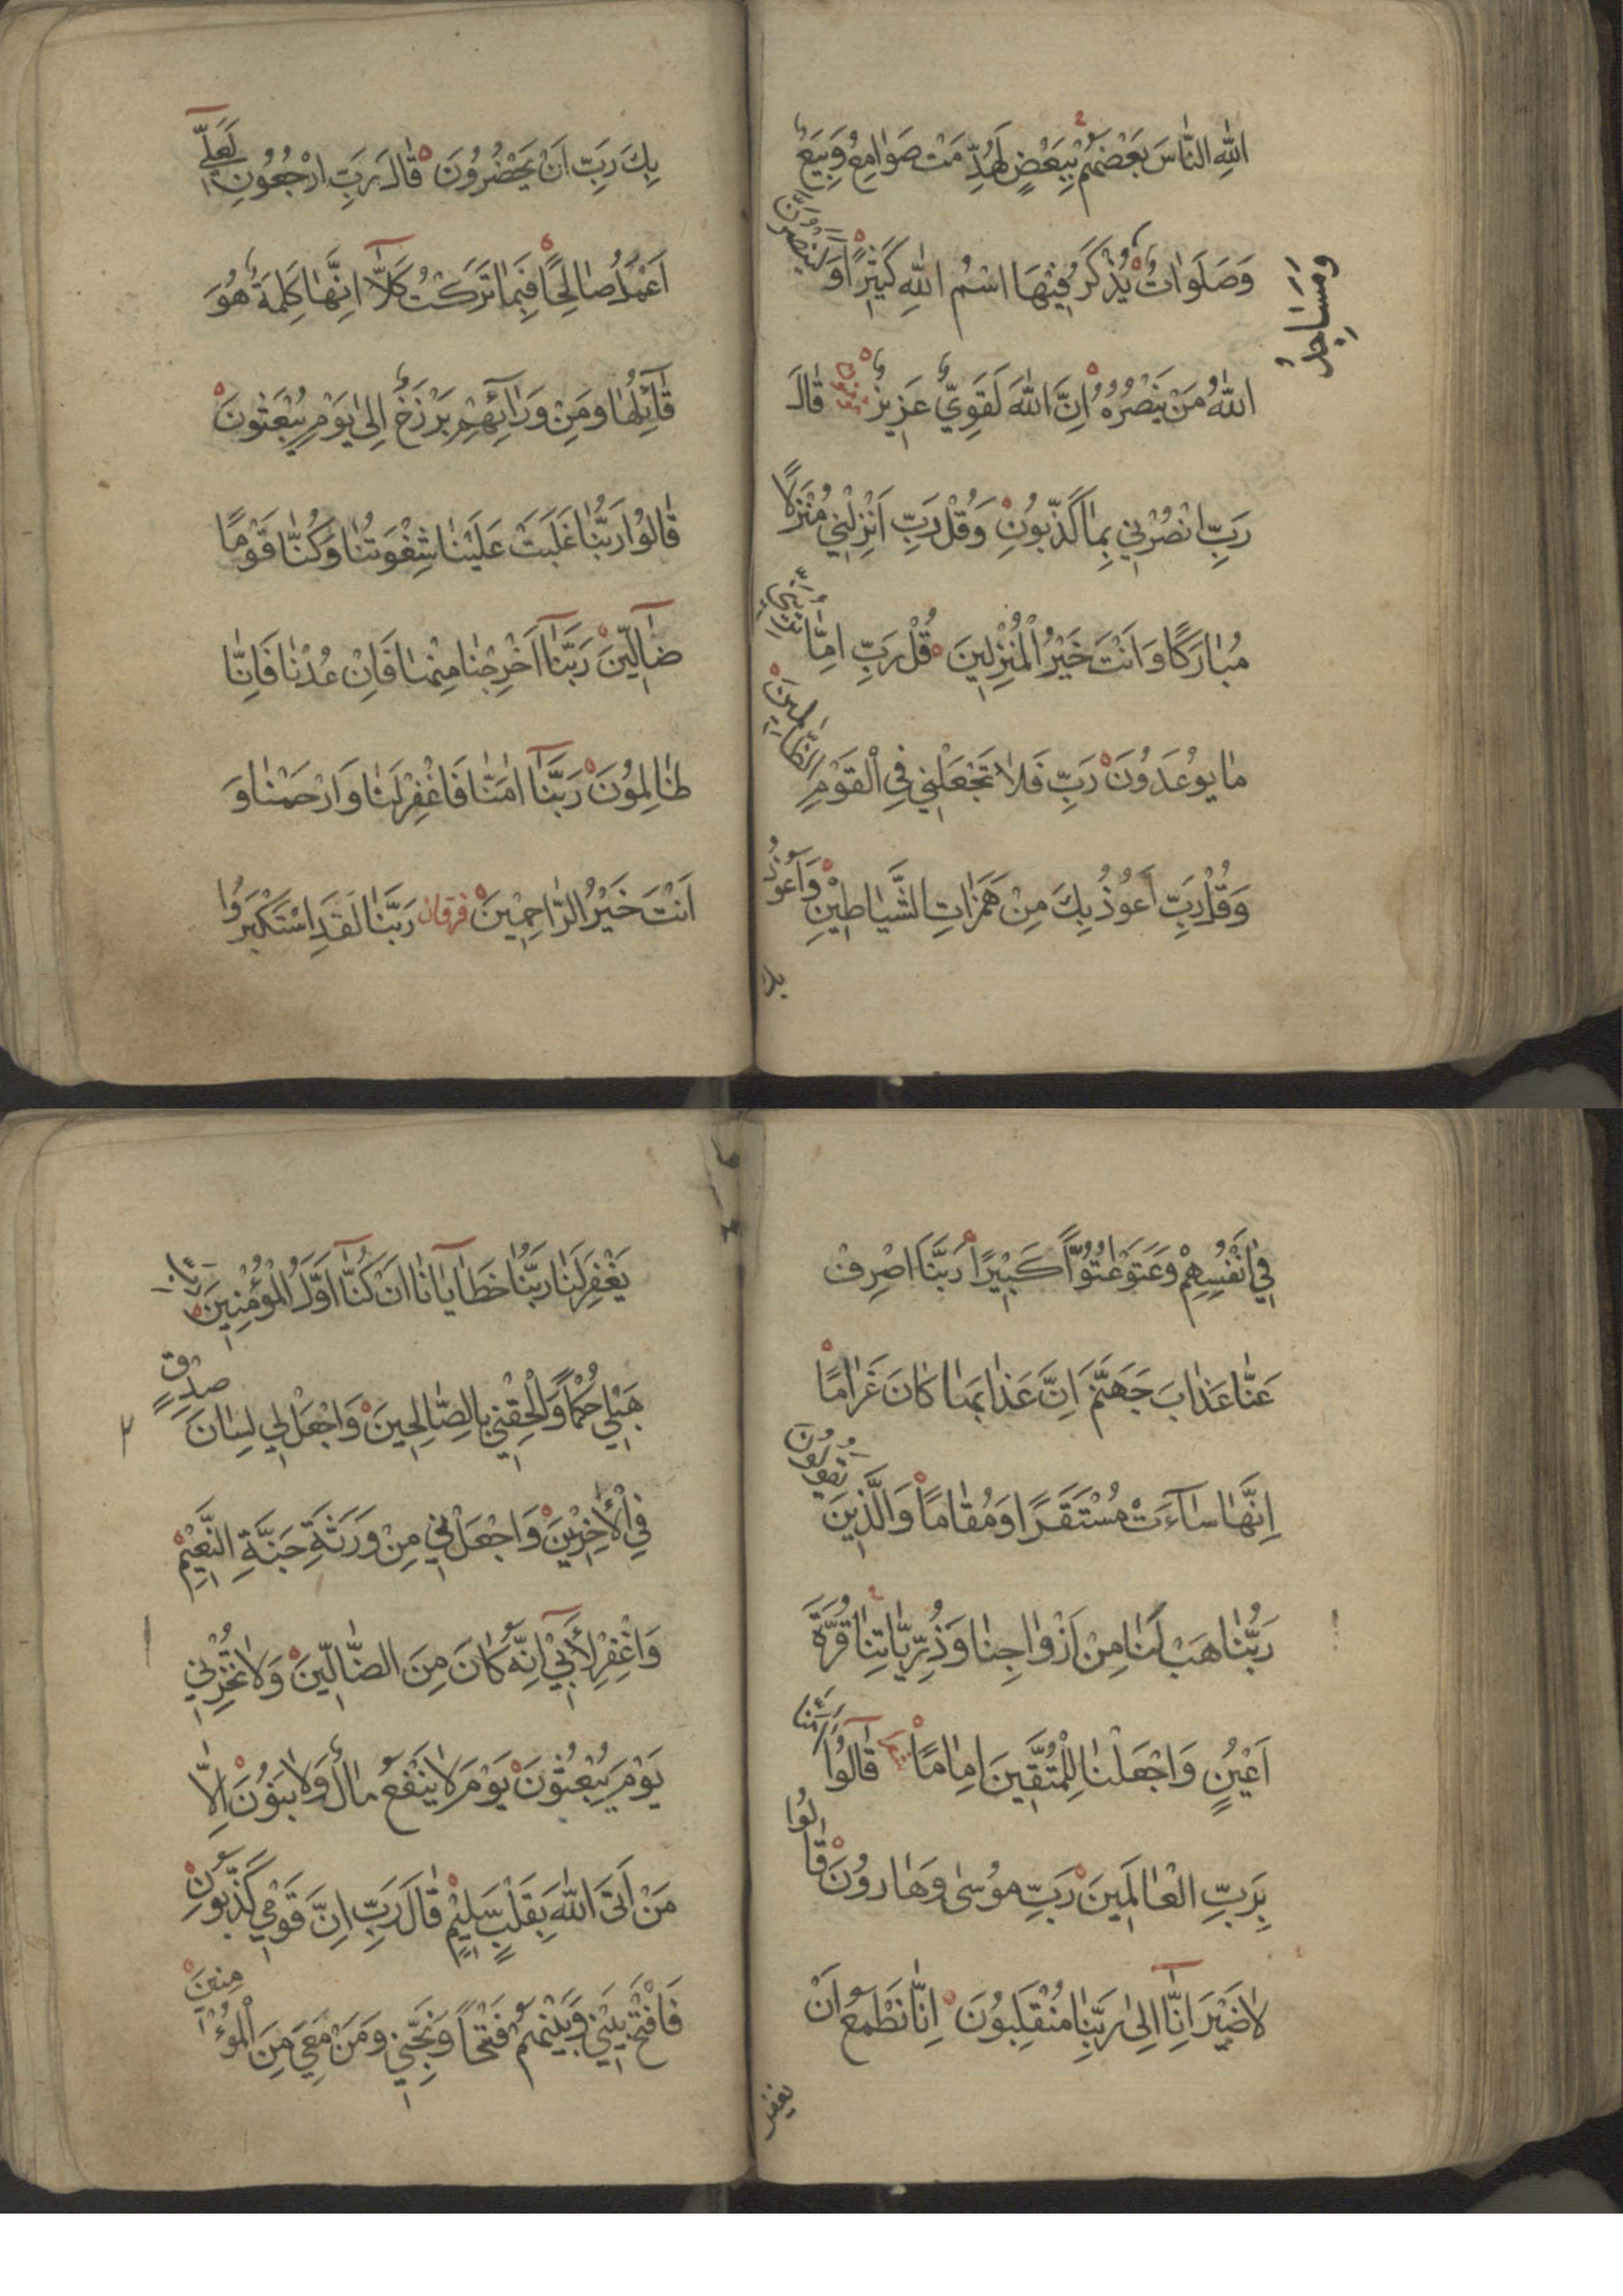 اللّٰهِ النَّاسَ بَعْضَهُمْ بِبَعْضٍ لَهُدِّمَتْ صَوَامِعُ وَبِيَعٌ
وَصَلَوَاتٌ يُذْكَرُ فِيْهَا اسْمُ اللّٰهِ كَثِيْرًا وَلَيَنْصُرَنَّ
وَمَسَاجِدُ
اللّٰهُ مَنْ يَنْصُرُهُ اِنَّ اللّٰهَ لَقَوِيٌّ عَزِيزٌ قَالَ
رَبِّ انْصُرْنِي بِمَا كَذَّبُونِ وَقُلْ رَبِّ اَنْزِلْنِي مُنْزَلًا
مُبَارَكًا وَاَنْتَ خَيْرُ الْمُنْزِلِينَ قُلْ رَبِّ اِمَّا تُرِيَنِّي
مَا يُوعَدُونَ رَبِّ فَلَا تَجْعَلْنِي فِي الْقَوْمِ الظَّالِمِينَ
وَقُلْ رَبِّ اَعُوْذُ بِكَ مِنْ هَمَزَاتِ الشَّيَاطِيْنِ وَاَعُوْذُ
بك
بِكَ رَبِّ اَنْ يَحْضُرُونَ قَالَ رَبِّ ارْجِعُونِ لَعَلِّي
اَعْمَلُ صَالِحًا فِيمَا تَرَكْتُ كَلَّا اِنَّهَا كَلِمَةٌ هُوَ
قَآئِلُهَا وَمِنْ وَرَآئِهِمْ بَرْزَخٌ اِلَى يَوْمِ يُبْعَثُونَ
قَالُوا رَبَّنَا غَلَبَتْ عَلَيْنَا شِقْوَتُنَا وَكُنَّا قَوْمًا
ضَآلِّينَ رَبَّنَآ اَخْرِجْنَا مِنْهَا فَاِنْ عُدْنَا فَاِنَّا
ظَالِمُونَ رَبَّنَآ اٰمَنَّا فَاغْفِرْ لَنَا وَارْحَمْنَا وَ
اَنْتَ خَيْرُ الرَّاحِمِيْنَ فرقان رَبَّنَا لَقَدِ اسْتَكْبَرُوا
فِي اَنْفُسِهِمْ وَعَتَوْ عُتُوًّا كَبِيْرًا رَبَّنَا اصْرِفْ
عَنَّا عَذَابَ جَهَنَّمَ اِنَّ عَذَابَهَا كَانَ غَرَامًا
اِنَّهَا سَآءَتْ مُسْتَقَرًّا وَمُقَامًا وَالَّذِينَ يَقُولُونَ
رَبَّنَا هَبْ لَنَا مِنْ اَزْوَاجِنَا وَذُرِّيَّاتِنَا قُرَّةَ
اَعْيُنٍ وَاجْعَلْنَا لِلْمُتَّقِينَ اِمَامًا قَالُوا اٰمَنَّا
بِرَبِّ الْعَالَمِينَ رَبِّ مُوسَى وَهَارُونَ قَالُوا
لَا ضَيْرَ اِنَّا اِلَى رَبِّنَا مُنْقَلِبُونَ اِنَّا نَطْمَعُ اَنْ
يغفر
يَغْفِرَ لَنَا رَبُّنَا خَطَايَانَا اَنْ كُنَّا اَوَّلَ الْمُؤْمِنِينَ رَبِّ
هَبْ لِي حُكْمًا وَاَلْحِقْنِي بِالصَّالِحِينَ وَاجْعَلْ لِي لِسَانَ صِدْقٍ
فِي الْاٰخِرِيْنَ وَاجْعَلْنِي مِنْ وَرَثَةِ جَنَّةِ النَّعِيْمِ
وَاغْفِرْ لِاَبِي اِنَّهُ كَانَ مِنَ الضَّالِّينَ وَلَا تُخْزِنِي
يَوْمَ يُبْعَثُونَ يَوْمَ لَا يَنْفَعُ مَالٌ وَلَا بَنُوْنَ اِلَّا
مَنْ اَتَى اللّٰهَ بِقَلْبٍ سَلِيْمٍ قَالَ رَبِّ اِنَّ قَوْمِي كَذَّبُونِ
فَافْتَحْ بَيْنِي وَبَيْنَهُمْ فَتْحًا وَنَجِّنِي وَمَنْ مَعِيَ مِنَ الْمُؤْمِنِينَ